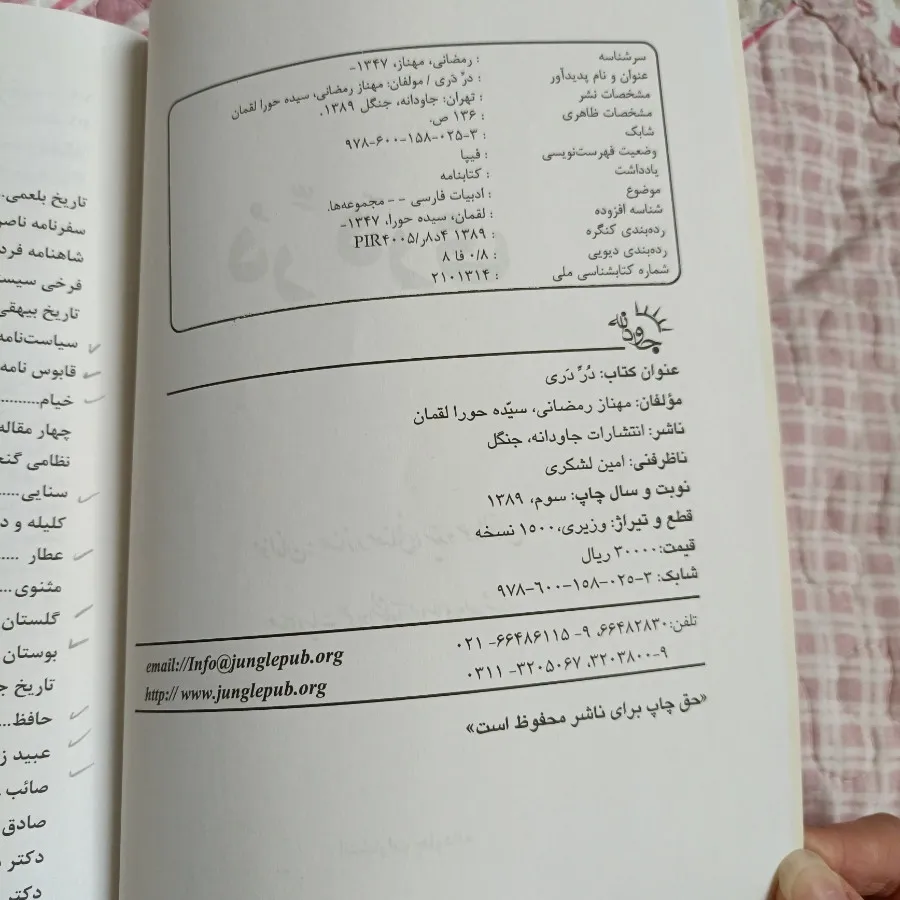 سرشناسه : رمضانی، مهناز، ۱۳۴۷-
عنوان و نام پدیدآور : دُرِّ دَری / مولفان: مهناز رمضانی، سیده حورا لقمان
مشخصات نشر : تهران: جاودانه، جنگل ۱۳۸۹.
مشخصات ظاهری : ۱۳۶ ص.
شابک : ۹۷۸-۶۰۰-۱۵۸-۰۲۵-۳
وضعیت فهرست‌نویسی : فیپا
یادداشت : کتابنامه
موضوع : ادبیات فارسی -- مجموعه‌ها.
شناسه افزوده : لقمان، سیده حورا، ۱۳۴۷-
رده‌بندی کنگره : ۱۳۸۹ ۴د۸ر/PIR۴۰۰۵
رده‌بندی دیویی : ۰/۸ فا ۸
شماره کتابشناسی ملی : ۲۱۰۱۳۱۴
جاودانه
عنوان کتاب: دُرِّ دَری
مؤلفان: مهناز رمضانی، سیّده حورا لقمان
ناشر: انتشارات جاودانه، جنگل
ناظرفنی: امین لشکری
نوبت و سال چاپ: سوم، ۱۳۸۹
قطع و تیراژ: وزیری، ۱۵۰۰ نسخه
قیمت: ۳۰۰۰۰ ریال
شابک: ۹۷۸-۶۰۰-۱۵۸-۰۲۵-۳
تلفن: ۶۶۴۸۲۸۳۰، ۹-۶۶۴۸۶۱۱۵-۰۲۱
۳۲۰۳۸۰۰-۹، ۳۲۰۵۰۶۷-۰۳۱۱
email://Info@junglepub.org
http:// www.junglepub.org
«حق چاپ برای ناشر محفوظ است»
تاریخ بلعمی..
سفرنامه ناصر
شاهنامه
فرخی
تاریخ بیهقی
سیاست‌نامه
قابوس نامه
خیام..........
چهار مقاله
نظامی
سنایی.....
کلیله و
عطار ....
مثنوی...
گلستان
بوستان
تاریخ
حافظ...
عبید
صائب
صادق
دکتر
دکتر